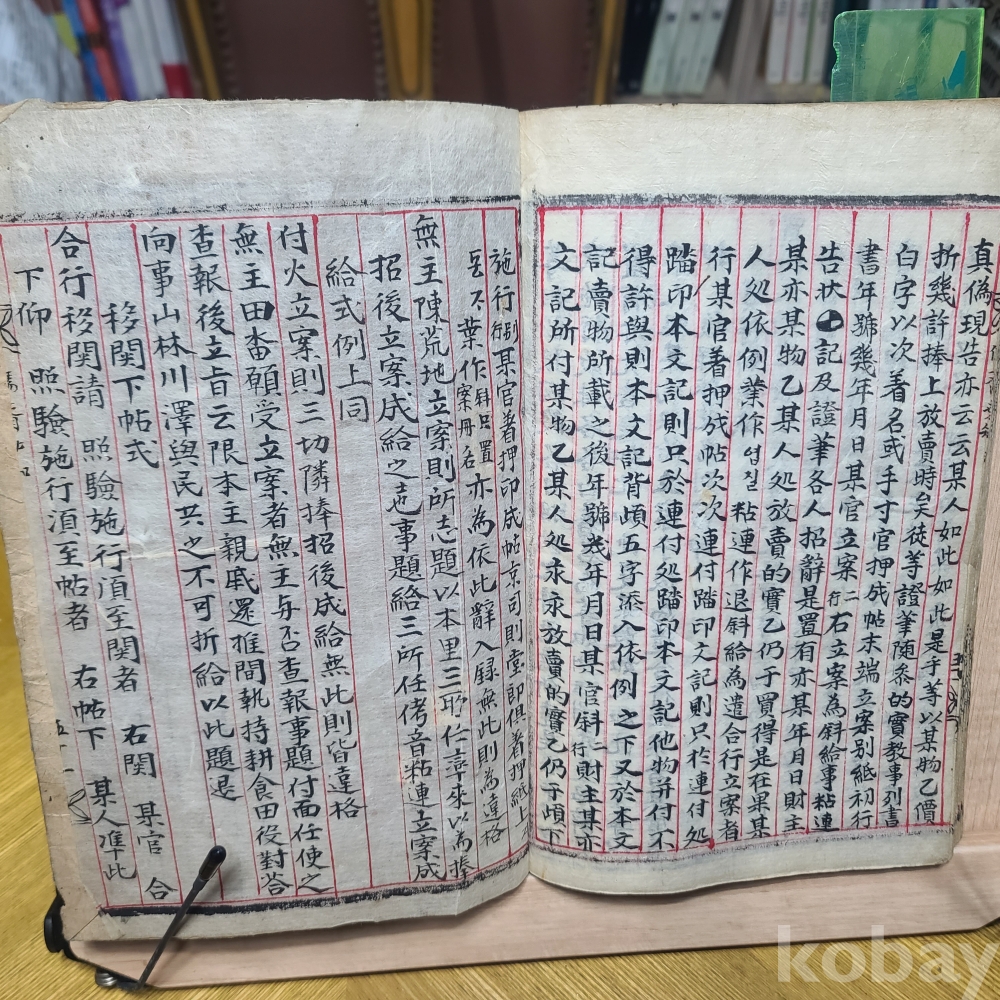 真偽現告亦云云某人如此如此是乎等以某物乙價
折幾許捧上放賣時矣徒等證筆隨參的實教事列書
白字以次着名或手寸官押成帖末端立案別紙初行
書年號幾年月日某官立案二行右立案為斜給事粘連
告狀記及證筆各人招辭是置有亦某年月日財主
某亦某物乙某人処放賣的實乙仍于買得是在果某
人処依例業作여질粘連作退斜給為遣合行立案者
行某官着押成帖次次連付踏印文記則只於連付処
踏印本文記則只於連付処踏印本文記他物并付不
得許與則本文記背頉五字添入依例之下又於本文
記賣物所載之後年號幾年月日某官斜二行財主某亦
文記所付某物乙某人処永永放賣的實乙仍于頉下
施行例某官着押印成帖京司則堂郎俱着押紙上
葉作斜只置案冊名亦為依此辭入録無此則為違格
無主陳荒地立案則所志題以本里三所任率來以為捧
招後立案成給之也事題給三所任侤音粘連立案成
給式例上同
付火立案則三切隣捧招後成給無此則皆違格
無主田畓願受立案者無主与否查報事題付面任使之
查報後立旨云限本主親戚還推間執持耕食田役對答
向事山林川澤與民共之不可折給以此題退
移関下帖式
合行移関請 照驗施行湏至関者 右関 某官 合
下仰 照驗施行湏至帖者 右帖下 某人准此
五十一